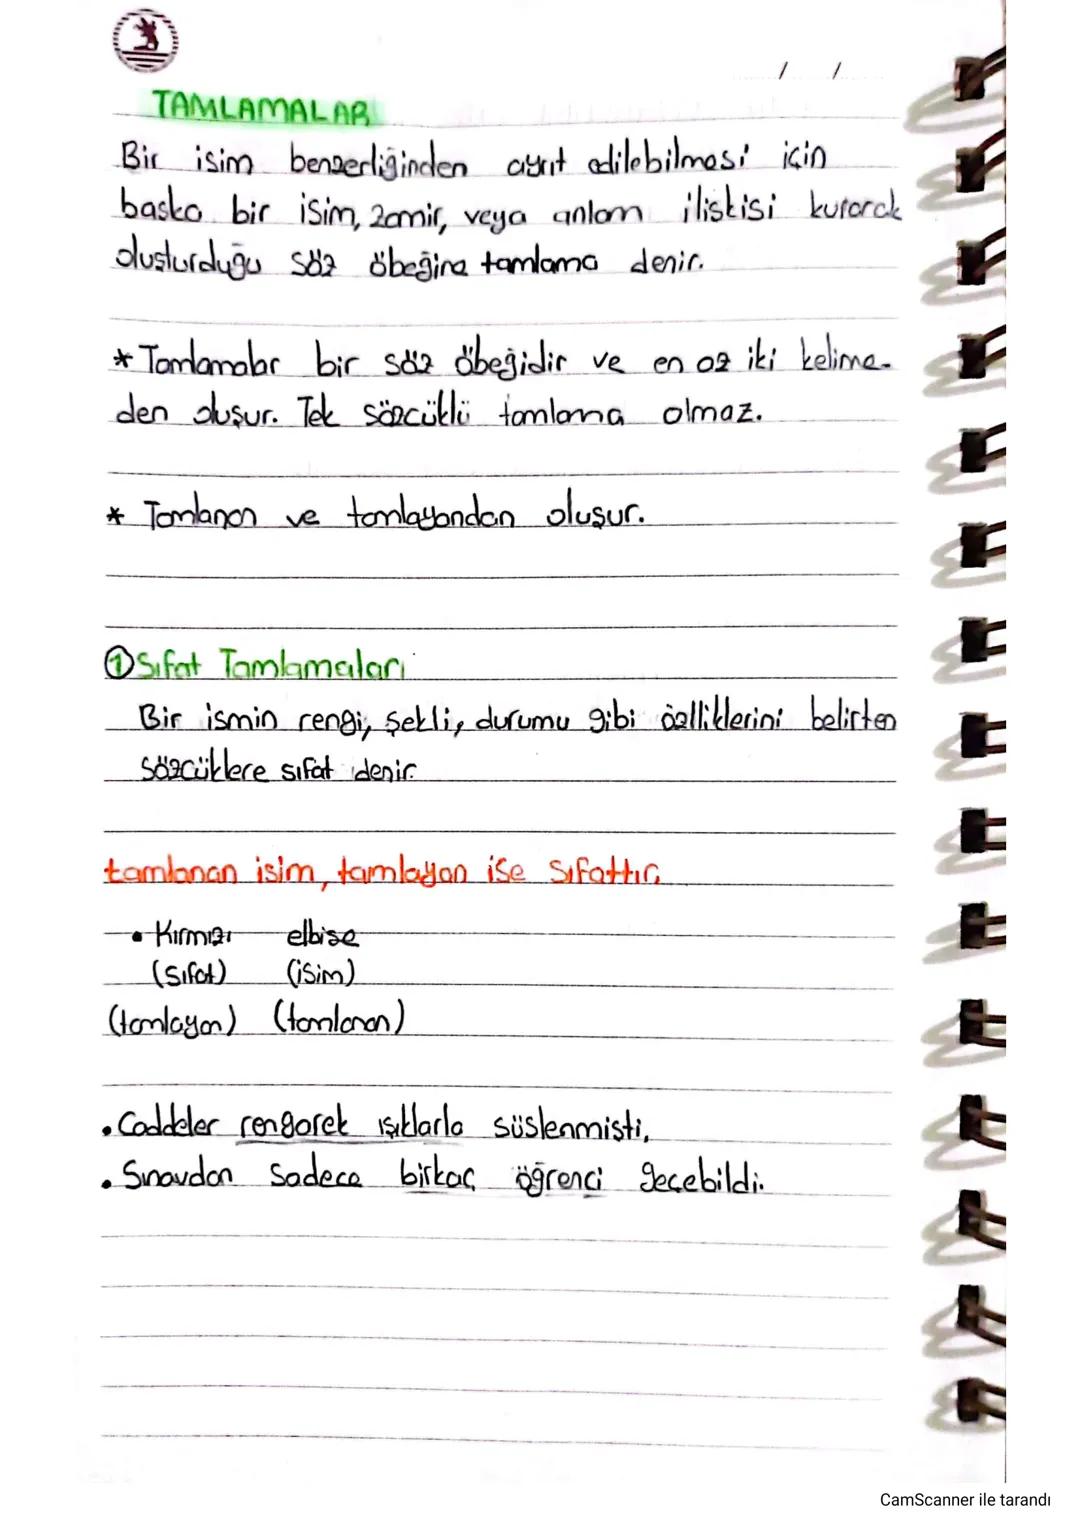 / /
TAMLAMALAR
Bir isim benzerliğinden ayırt edilebilmesi için
başka bir isim, zamir, veya anlam ilişkisi kurarak
oluşturduğu söz öbeğine tamlama denir.
* Tamlamalar bir söz öbeğidir ve en az iki kelime-
den oluşur. Tek sözcüklü tamlama olmaz.
* Tamlanan ve tamlayandan oluşur.
① Sıfat Tamlamaları
Bir ismin rengi, şekli, durumu gibi özelliklerini belirten
sözcüklere sıfat denir.
tamlanan isim, tamlayan ise sıfattır.
• Kırmızı elbise
(sıfat) (isim)
(tamlayan) (tamlanan)
• Caddeler rengarek ışıklarla süslenmişti.
• Sınavdan sadece birkaç öğrenci geçebildi.
CamScanner ile tarandı